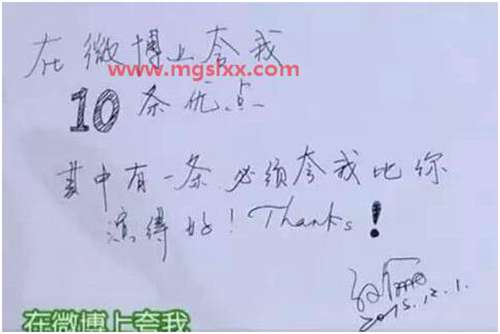 在微博上夸我
www.mgslxx.com
10条优点
其中有一条必须夸我比你
演得好！Thanks！
2015.12.1.
在微博上夸我